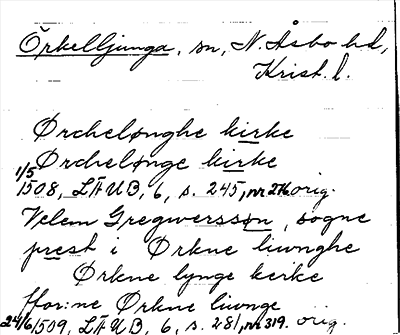 Örkelljunga, sn, N. Åsbo hd,
Krist. l.
Ørchelønghe kirke
Ørchelønge kirke
1/5 1508, LÄUB, 6, s. 245, nr 276 orig.
Velem Gregwersson, sogne
prest i Ørkne liwnghe
Ørkne lynge kerke
ffor:ne Ørkne liwnge
24/6 1509, LÄUB, 6, s. 281, nr 319, orig.